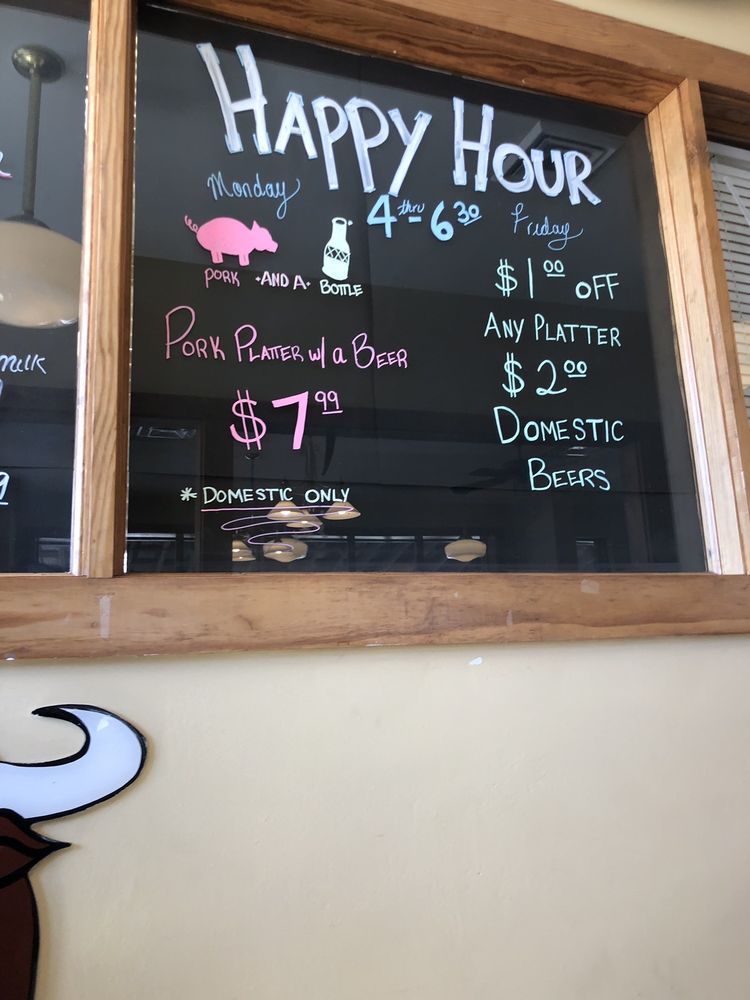 Happy Hour
Monday 4 thru 6 30 Friday
Pork •and a• Bottle
Pork Platter w/ a Beer
$7 99
* Domestic only
$1 00 off
Any Platter
$2 00
Domestic
Beers
milk
9